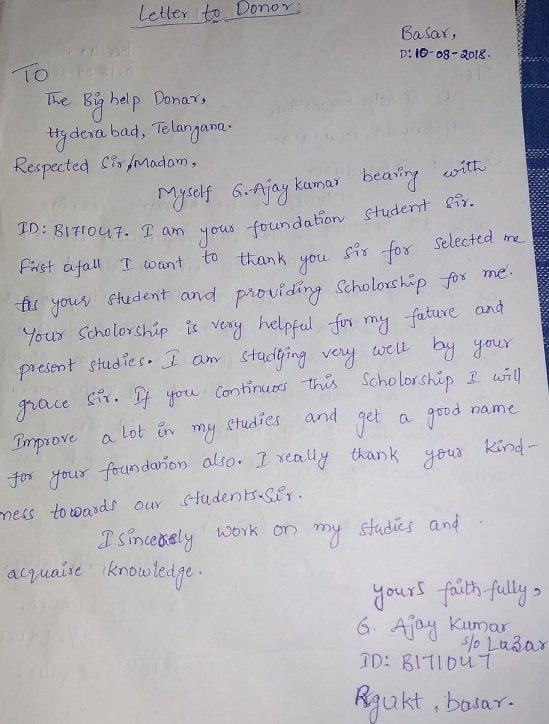 Letter to Donor:
Basar,
D: 10-08-2018.
To
The Big help Donar,
Hyderabad, Telangana.
Respected Sir/Madam,
Myself G. Ajay kumar bearing with
ID: B171047. I am your foundation student Sir.
First afall I want to thank you Sir for selected me
As your student and providing Scholorship for me.
Your Scholorship is very helpful for my future and
present studies. I am studying very well by your
grace Sir. If you continues this Scholorship I will
Improve a lot in my studies and get a good name
for your foundation also. I really thank your kind-
ness towards our students. Sir.
I sincerely work on my studies and
acquaire knowledge.
yours faithfully,
G. Ajay Kumar
S/o Lazar
ID: B171047
Rgukt, basar.